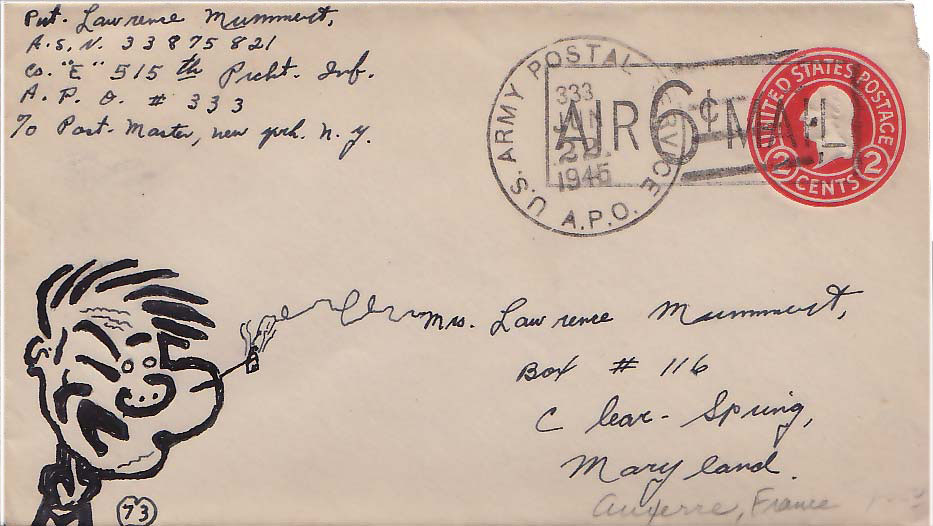 Pvt. Lawrence Mummert,
A.S.N. 33875821
Co. "E" 515th Prcht. Inf.
A.P.O. # 333
% Post-Master, new york. n.y.
U.S. ARMY POSTAL SERVICE
A.P.O.
333
JAN
22
1945
AIR 6¢ MAIL
UNITED STATES POSTAGE
2 CENTS 2
Mrs. Lawrence Mummert,
Box # 116
Clear-Spring,
Maryland.
Auxerre, France
73